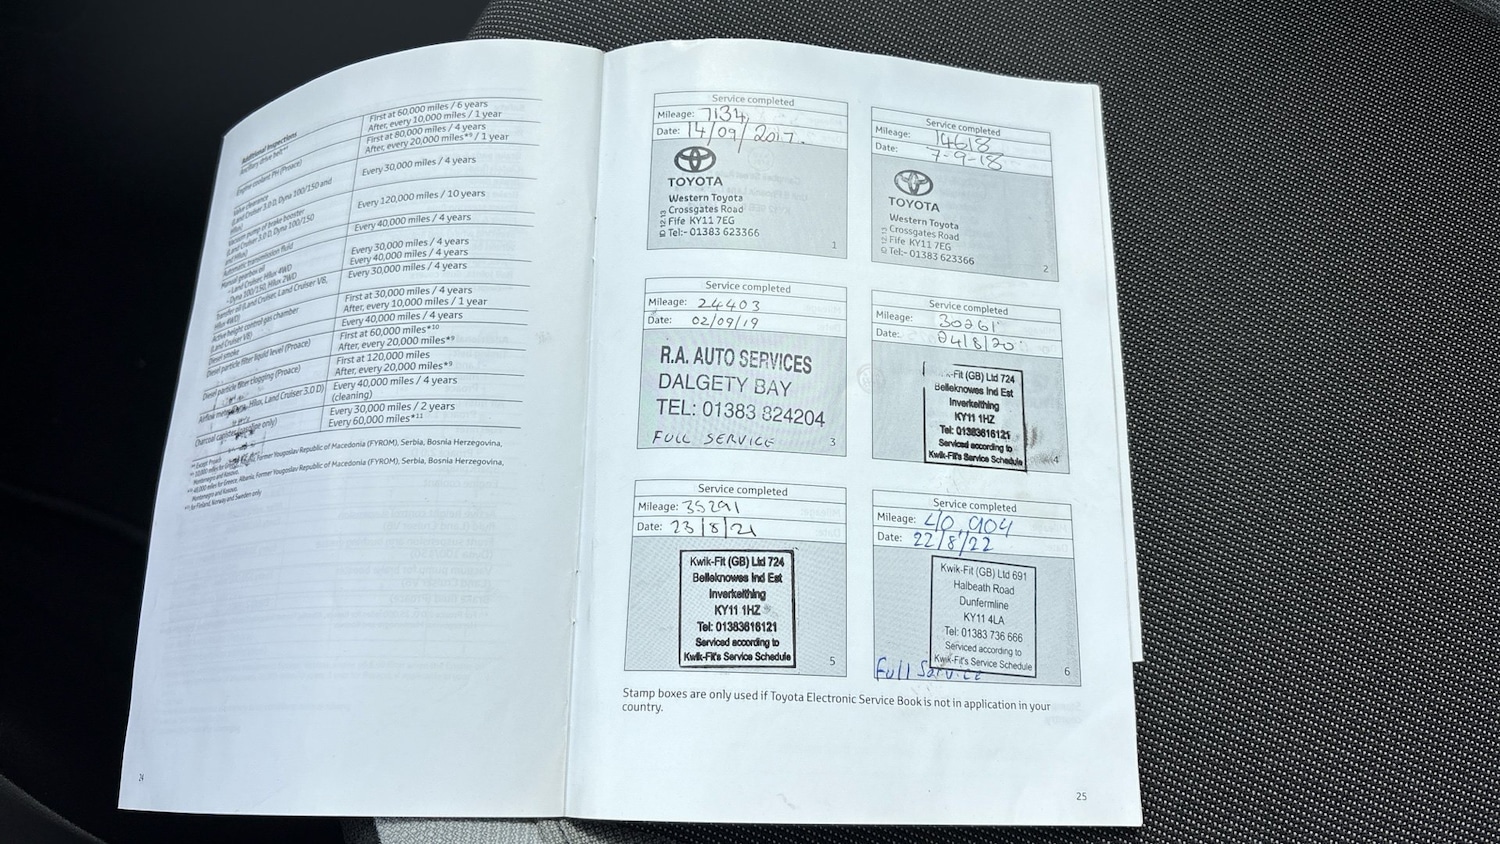 Additional Inspections
Ancillary drive belt*⁷
First at 60,000 miles / 6 years
After, every 10,000 miles / 1 year
Engine coolant PH (Proace)
First at 80,000 miles / 4 years
After, every 20,000 miles*⁹ / 1 year
Valve clearance
(Land Cruiser 3.0 D, Dyna 100/150 and
Hilux)
Every 30,000 miles / 4 years
Vacuum pump of brake booster
(Land Cruiser 3.0 D, Dyna 100/150
and Hilux)
Every 120,000 miles / 10 years
Automatic transmission fluid
Every 40,000 miles / 4 years
Manual gearbox oil
- Land Cruiser, Hilux 4WD
- Dyna 100/150, Hilux 2WD
Every 30,000 miles / 4 years
Every 40,000 miles / 4 years
Transfer oil (Land Cruiser, Land Cruiser V8,
Hilux 4WD)
Every 30,000 miles / 4 years
Active height control gas chamber
(Land Cruiser V8)
First at 30,000 miles / 4 years
After, every 10,000 miles / 1 year
Diesel smoke
Every 40,000 miles / 4 years
Diesel particle filter liquid level (Proace)
First at 60,000 miles*¹⁰
After, every 20,000 miles*⁹
Diesel particle filter clogging (Proace)
First at 120,000 miles
After, every 20,000 miles*⁹
Airflow Hilux, Land Cruiser 3.0 D)
Every 40,000 miles / 4 years
(cleaning)
Charcoal canister (gasoline only)
Every 30,000 miles / 2 years
Every 60,000 miles*¹¹
Former Yougoslav Republic of Macedonia (FYROM), Serbia, Bosnia Herzegovina,
Montenegro and Kosovo.
Albania, Former Yougoslav Republic of Macedonia (FYROM), Serbia, Bosnia Herzegovina,
Montenegro and Kosovo
for Finland, Norway and Sweden only
24
Service completed
Mileage: 7134
Date: 14/09/2017.
TOYOTA
Western Toyota
Crossgates Road
Fife KY11 7EG
Tel:- 01383 623366
1
Service completed
Mileage: 14618
Date: 7-9-18
TOYOTA
Western Toyota
Crossgates Road
Fife KY11 7EG
Tel:- 01383 623366
2
Service completed
Mileage: 24403
Date: 02/09/19
R.A. AUTO SERVICES
DALGETY BAY
TEL: 01383 824204
FULL SERVICE
3
Service completed
Mileage: 30261
Date: 04/8/20
-Fit (GB) Ltd 724
Belleknowes Ind Est
Inverkeithing
KY11 1HZ
Tel: 01383616121
Serviced according to
Kwik-Fit's Service Schedule
4
Service completed
Mileage: 35291
Date: 23/8/21
Kwik-Fit (GB) Ltd 724
Belleknowes Ind Est
Inverkeithing
KY11 1HZ
Tel: 01383616121
Serviced according to
Kwik-Fit's Service Schedule
5
Service completed
Mileage: 40,904
Date: 22/8/22
Kwik-Fit (GB) Ltd 691
Halbeath Road
Dunfermline
KY11 4LA
Tel: 01383 736 666
Serviced according to
Kwik-Fit's Service Schedule
Full Service
6
Stamp boxes are only used if Toyota Electronic Service Book is not in application in your
country.
25